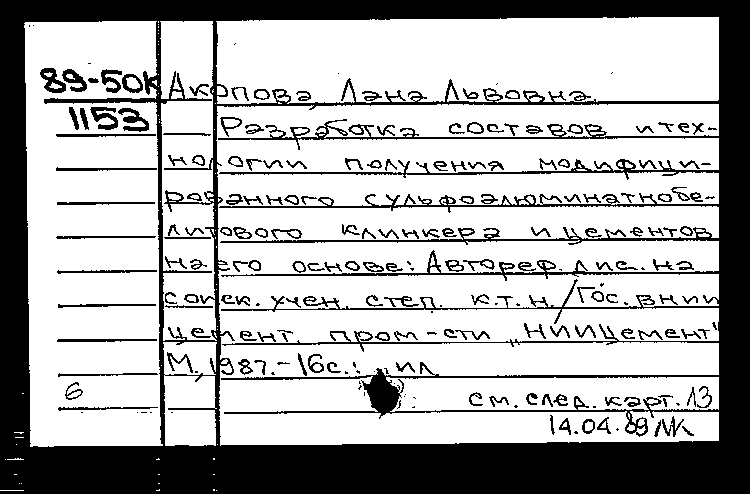 89-50К Акопова, Лана Львовна
1153 Разработка составов и тех-
нологии получения модифици-
рованного сульфоалюминатнобе-
литового клинкера и цементов
на его основе: Автореф. дис. на
соиск. учен. степ. к.т.н. / Гос. ВНИИ
цемент. пром-сти „НИИЦемент"
М., 1987.-16с.: ил
6 см. след. карт. 13
14.04.89